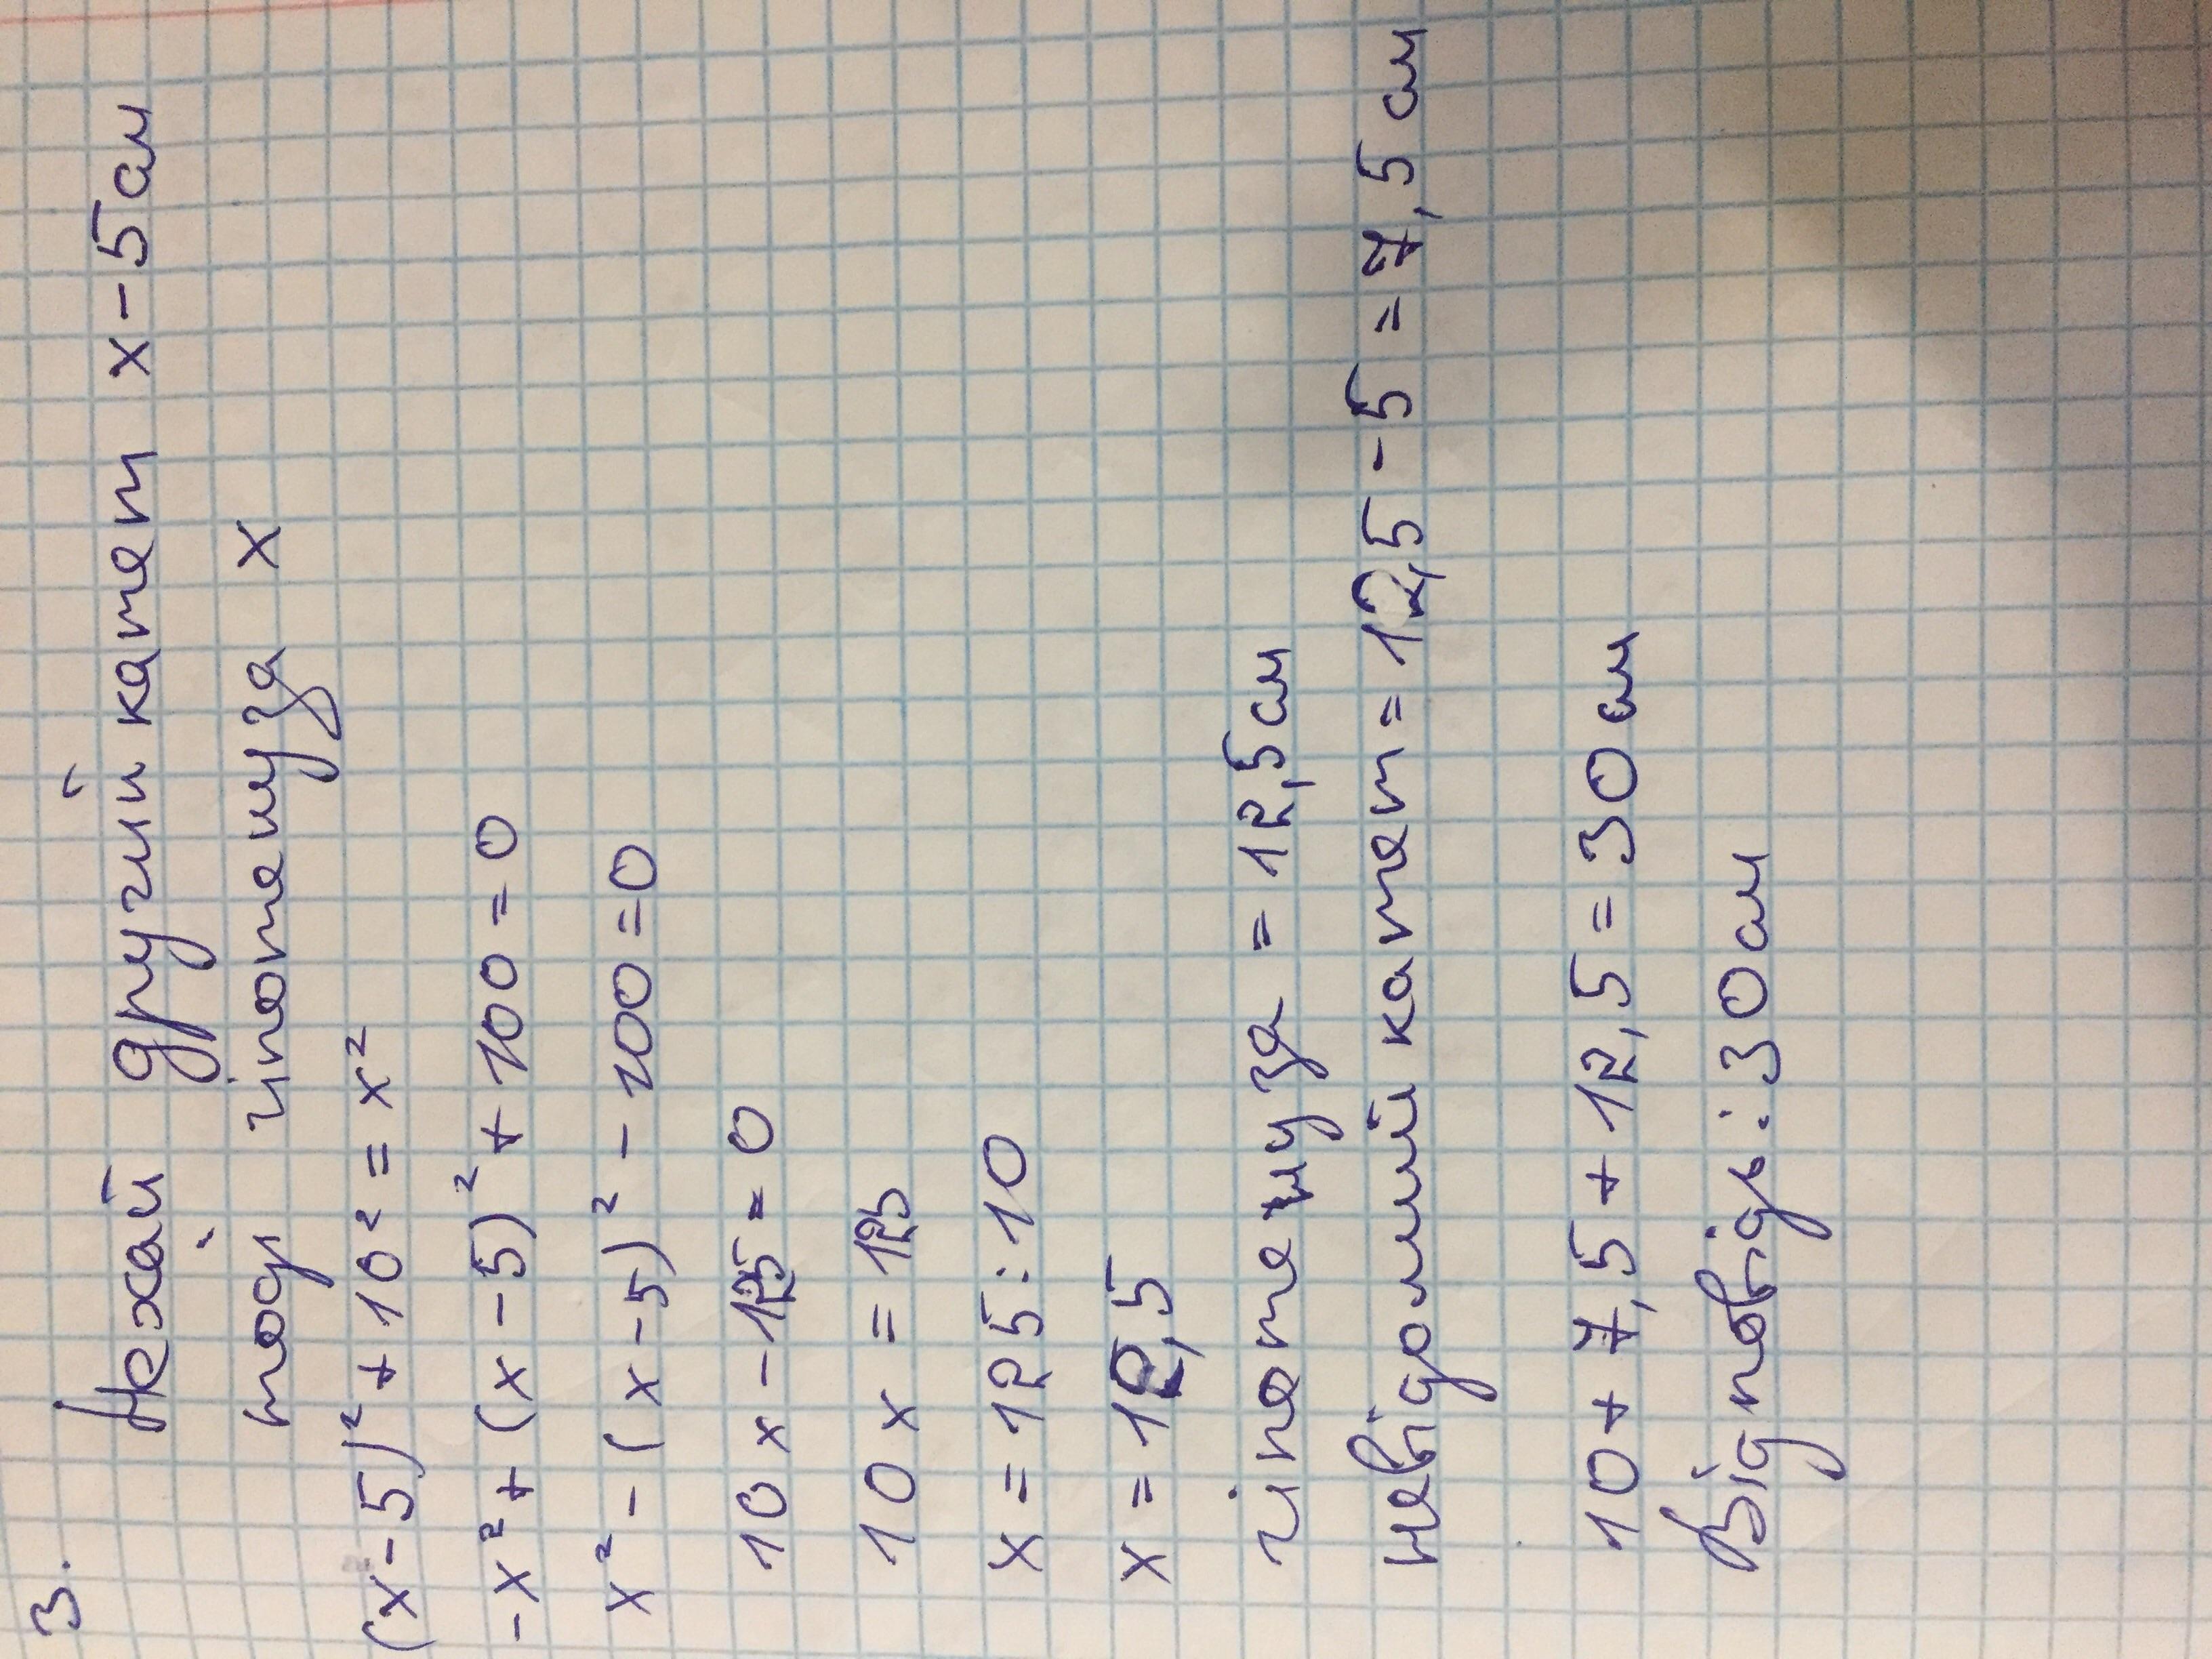 3.
Нехай другий катет x-5см
тоді гіпотенуза x
(x-5)² + 10² = x²
-x² + (x-5)² + 100 = 0
x² - (x-5)² - 100 = 0
10x - 125 = 0
10x = 125
x = 125 : 10
x = 12,5
гіпотенуза = 12,5см
невідомий катет = 12,5 - 5 = 7,5 см
10 + 7,5 + 12,5 = 30 см
Відповідь: 30 см